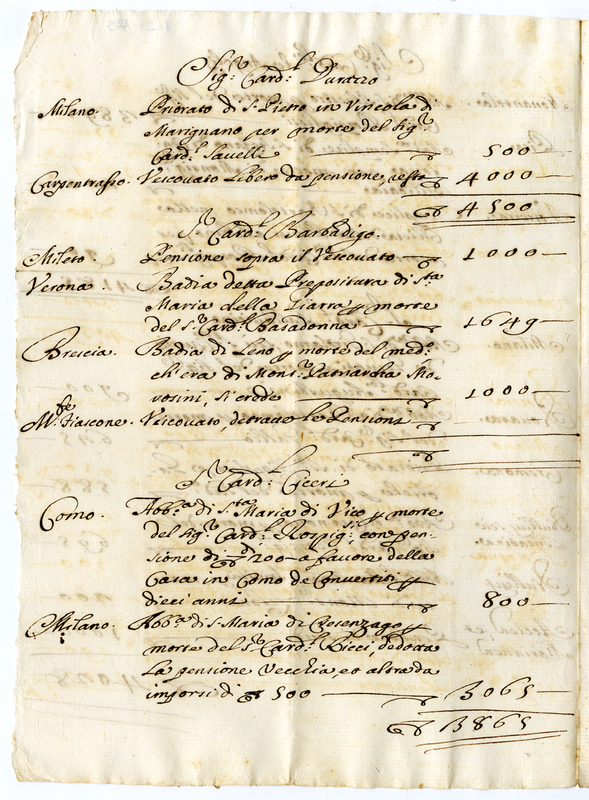 Sig.r Card.l Durazzo
Milano. Priorato di S. Pietro in Vincola di
Marignano per morte del Sig.r
Card.l Savelli ▽ 500 —
Carpentrasso. Vescovato libero da pensione, resta ▽ 4000 —
▽ 4500
S.r Card.l Barbadigo.
Mileto. Pensione sopra il Vescovato — ▽ 1000 —
Verona. Badia detta Prepositura di S.ta
Maria della Giarra p morte
del S.r Card.l Basadonna — ▽ 1649 —
Brescia. Badia di Leno p morte del med.o
ch'era di Mons.r Patriarcha Mo-
rosini, si crede — ▽ 1000 —
M.te Fiascone. Vescovato, detratte le Pensioni ▽
▽
S.r Card.l Ciceri
Como. Abb.a di S.ta Maria di Vico p morte
del Sig.r Card.l Rospig.si con pen-
sione di ▽ di 200 — a favore della
Casa in Como de Convertiti p
dieci anni — ▽ 800 —
Milano. Abb.a di S. Maria di Cresenzago p
morte del S.r Card.l Ricci, dedotta
la pensione Vecchia, et altra da
imporsi di ▽ 500 — ▽ 3065 —
▽ 3865